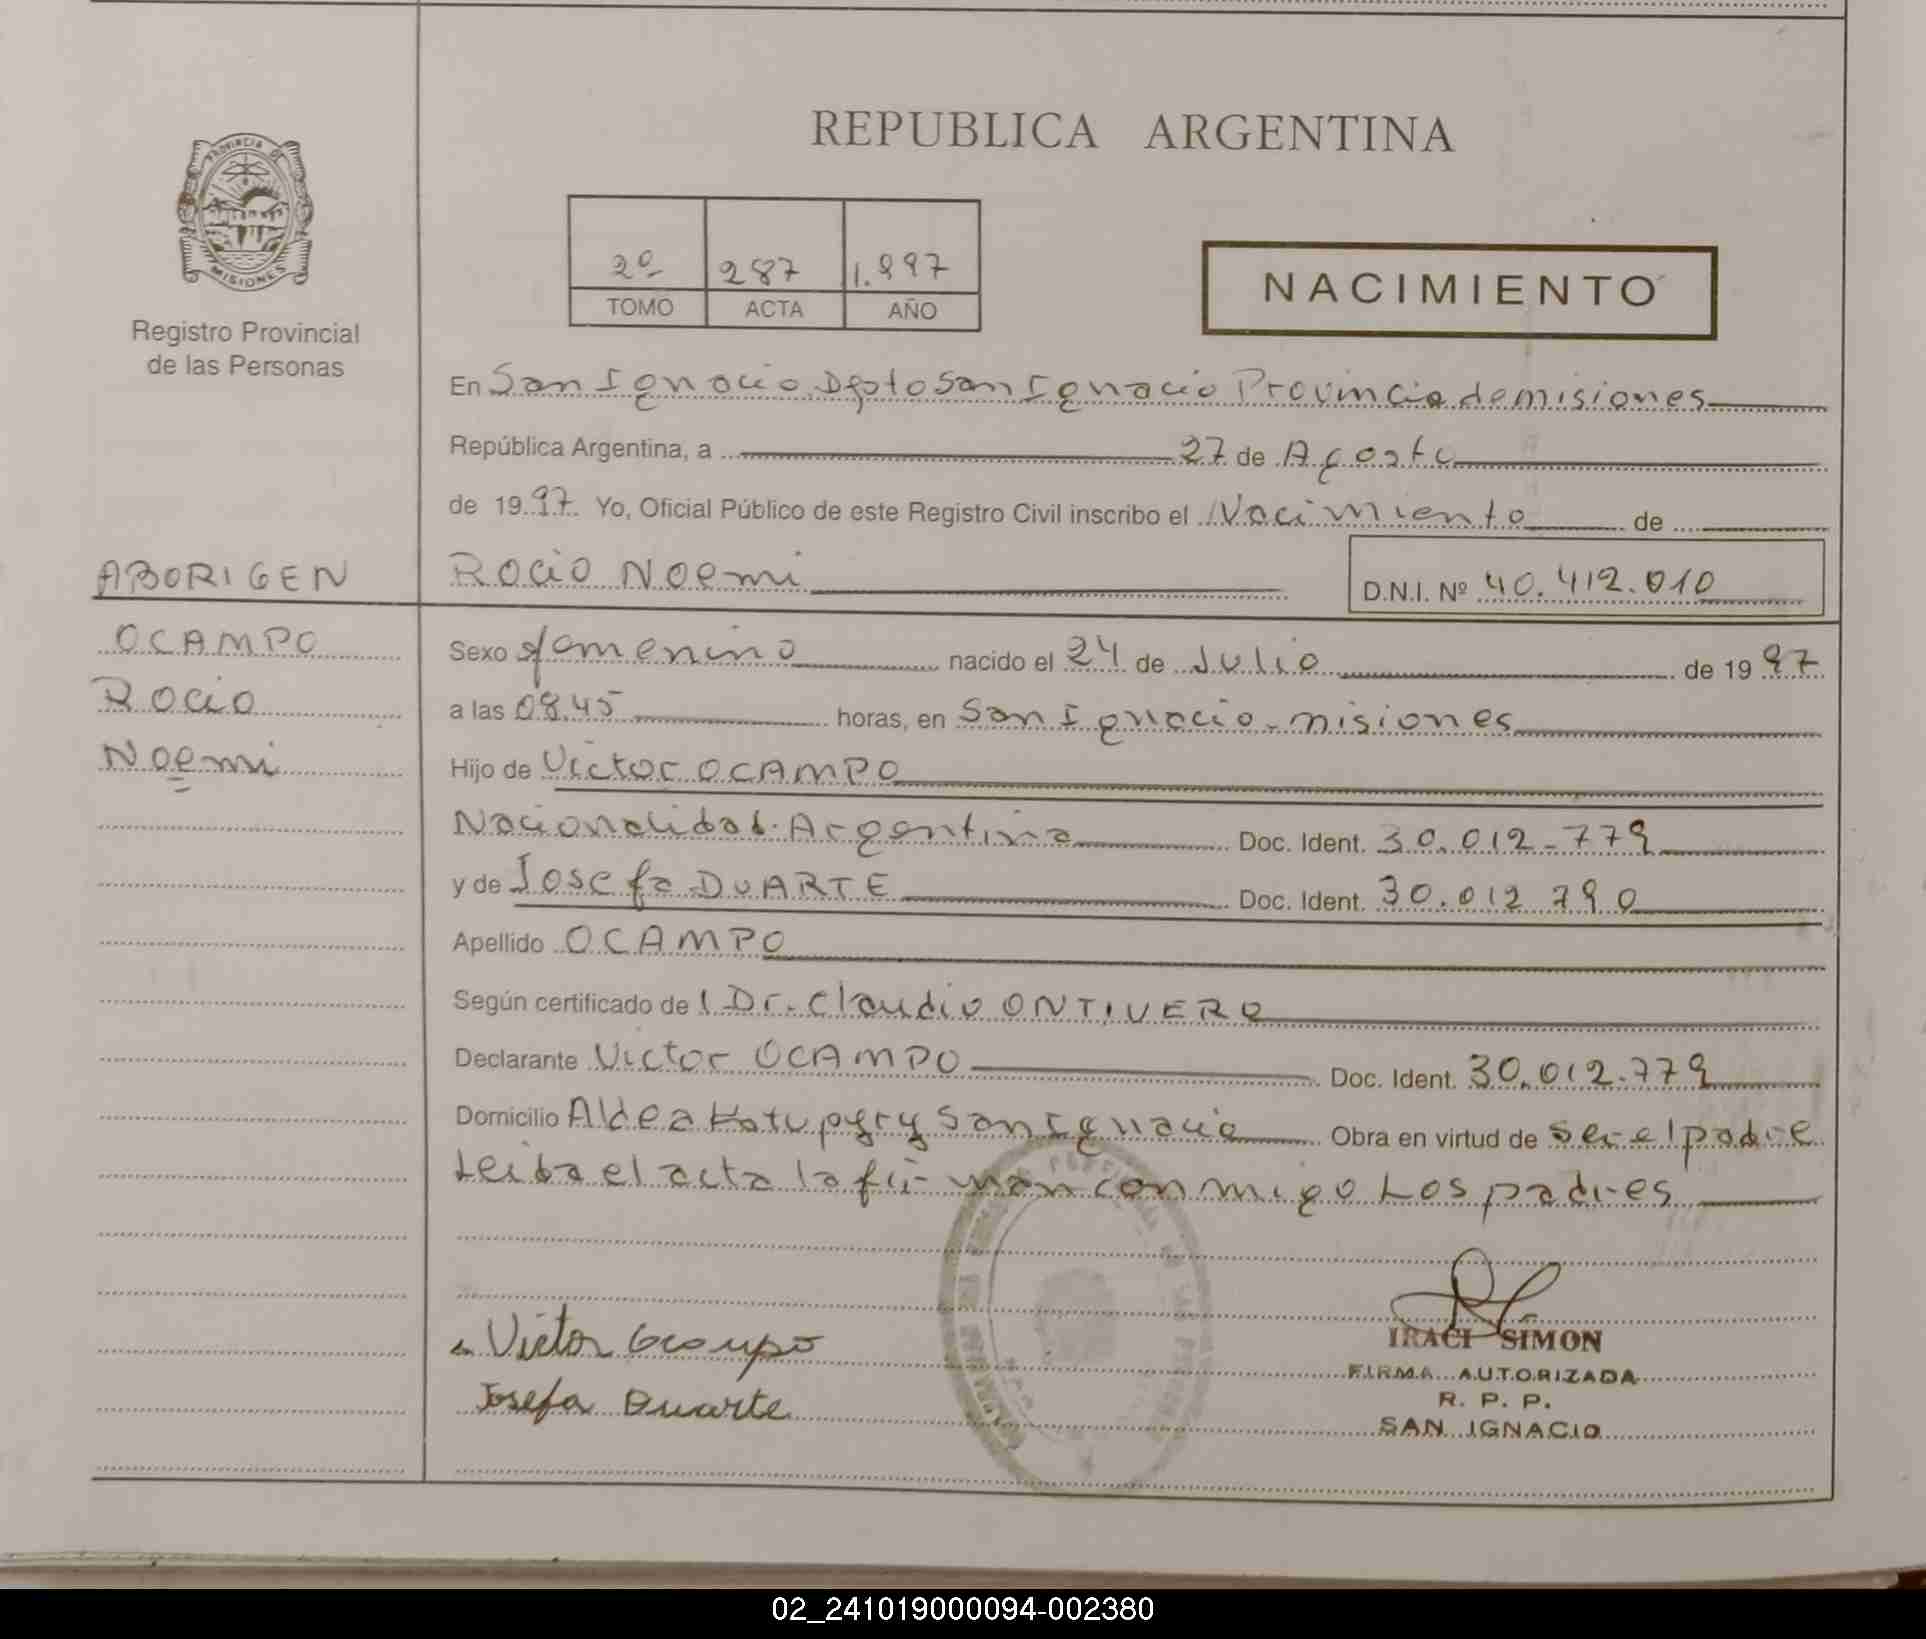 REPUBLICA ARGENTINA
PROVINCIA DE
MISIONES
Registro Provincial
de las Personas
2º 287 1.997
TOMO ACTA AÑO
NACIMIENTO
En San Ignacio, Dpto San Ignacio Provincia de misiones
República Argentina, a 27 de Agosto
de 1997 Yo, Oficial Público de este Registro Civil inscribo el Nacimiento de
ABORIGEN
Rocio Noemi
D.N.I. Nº 40.412.010
OCAMPO
Rocio
Noemi
Sexo femenino nacido el 24 de Julio de 1997
a las 08.45 horas, en San Ignacio - misiones
Hijo de Victor OCAMPO
Nacionalidad. Argentina Doc. Ident. 30.012-779
y de Josefa DUARTE Doc. Ident. 30.012 790
Apellido OCAMPO
Según certificado de l Dr. Claudio ONTIVERO
Declarante Victor OCAMPO Doc. Ident. 30.012.779
Domicilio Aldea Katupyry San Ignacio Obra en virtud de ser el padre
Leida el acta la firman conmigo Los padres
Victor Ocampo
Josefa Duarte
IRACI SIMON
FIRMA AUTORIZADA
R. P. P.
SAN IGNACIO
02_241019000094-002380